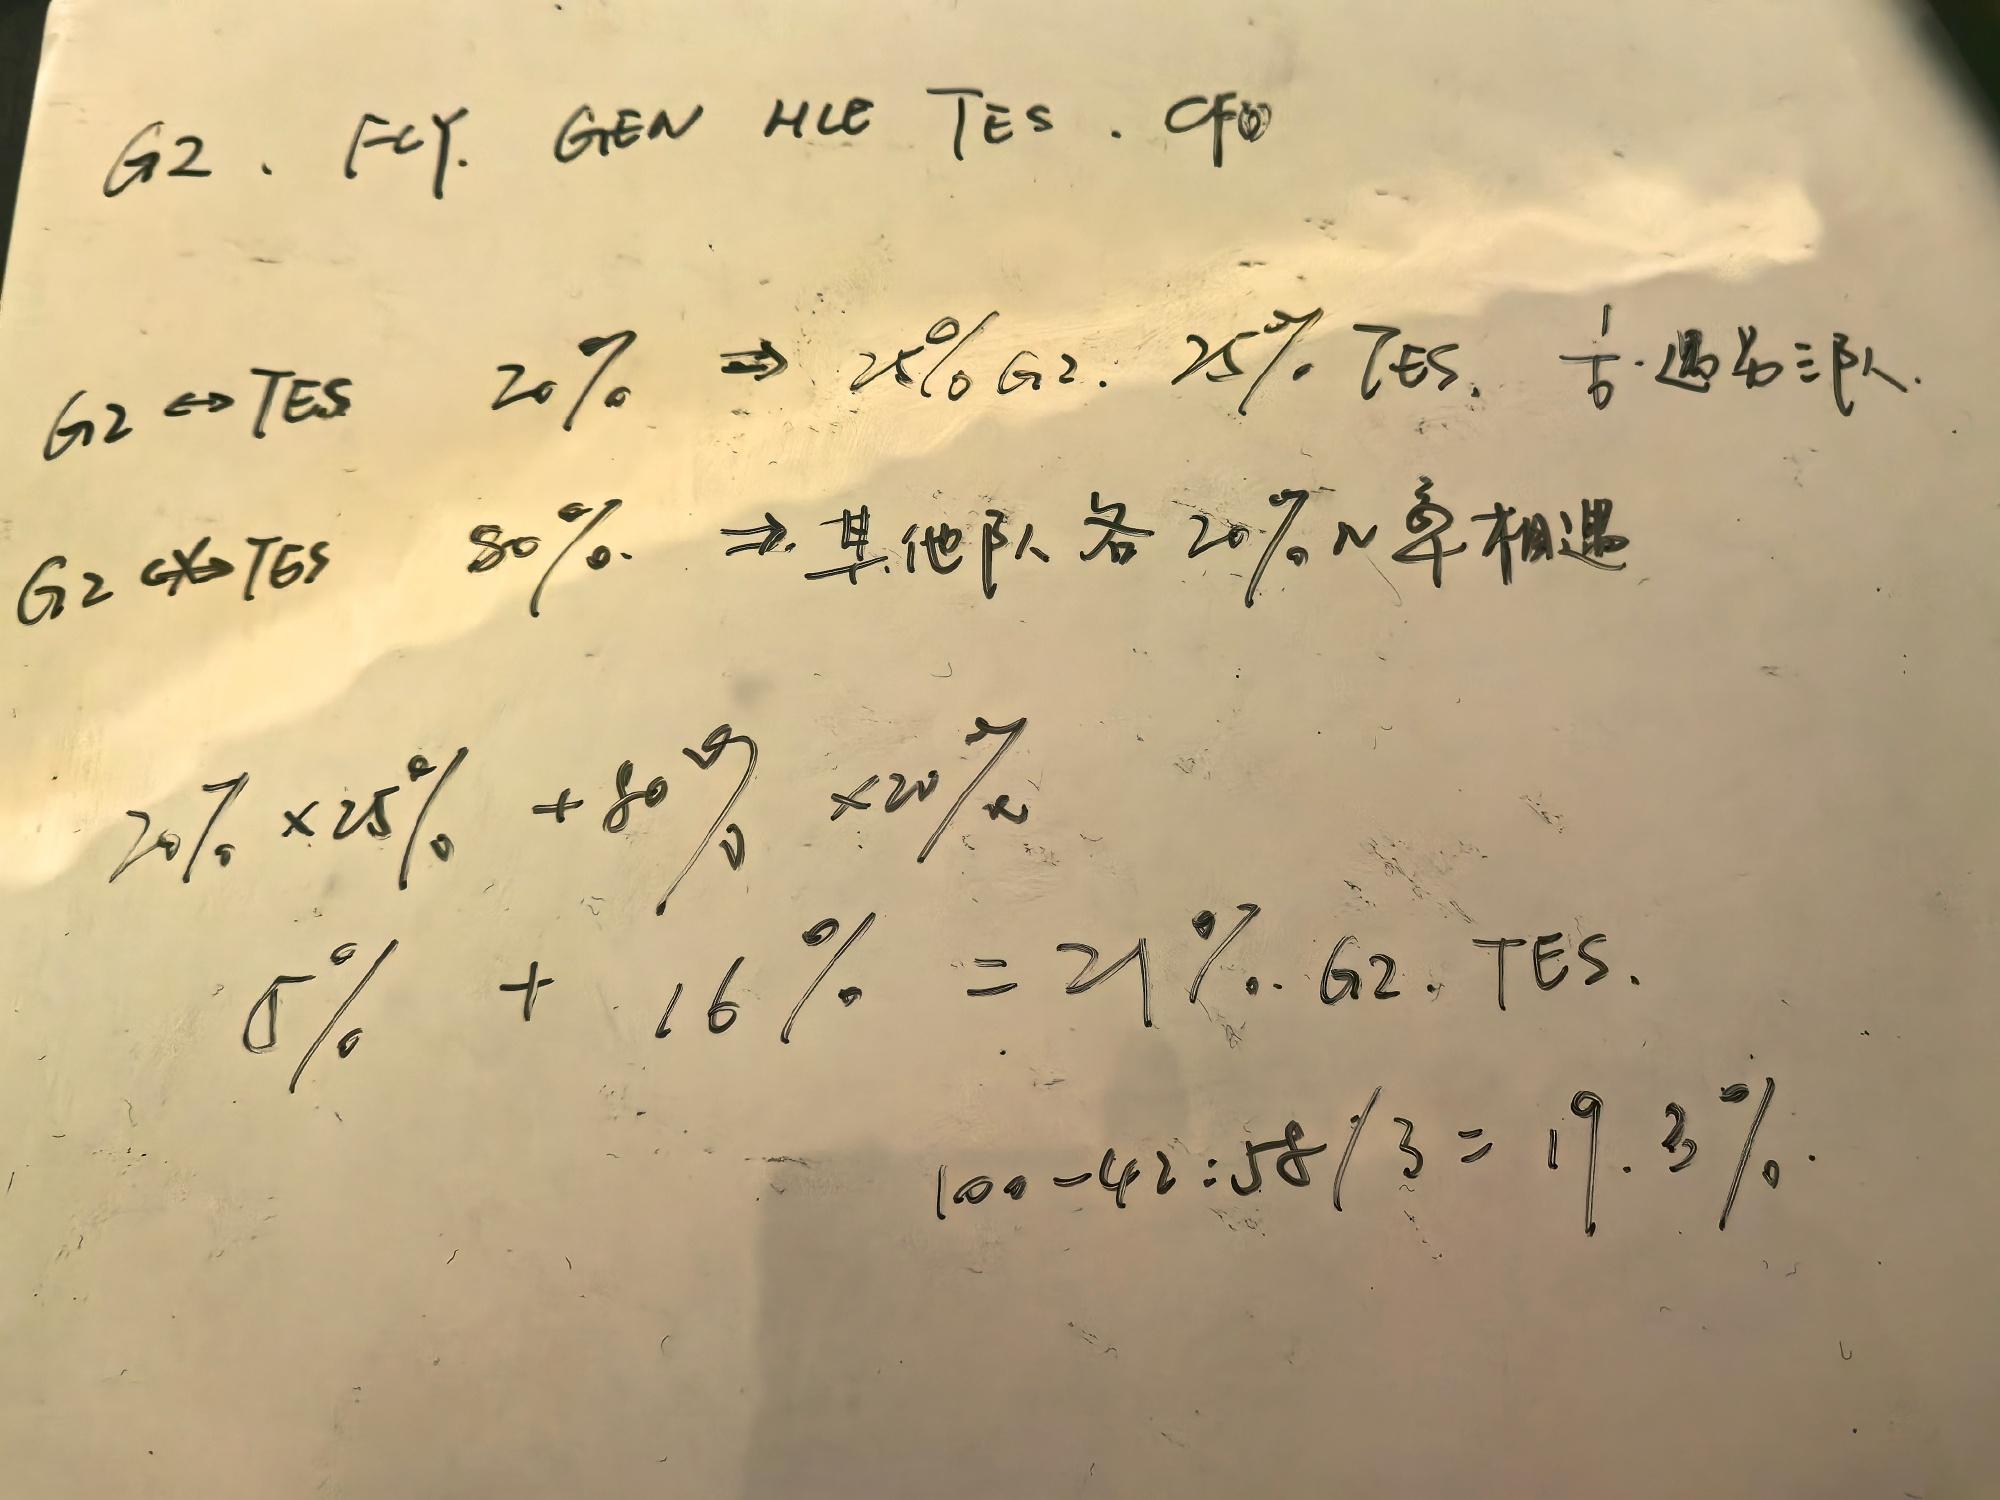 G2. FLY. GEN HLE TES. CFO
G2 ↔ TES 20% ⇒ 25% G2. 25% TES. 1/6. 遇另三队.
G2 ↔ TES 80%. ⇒ 其他队各 20% 率相遇
20% ×25% +80% ×20%
5% + 16% = 21%. G2. TES.
100-42:58/3=19.3%.